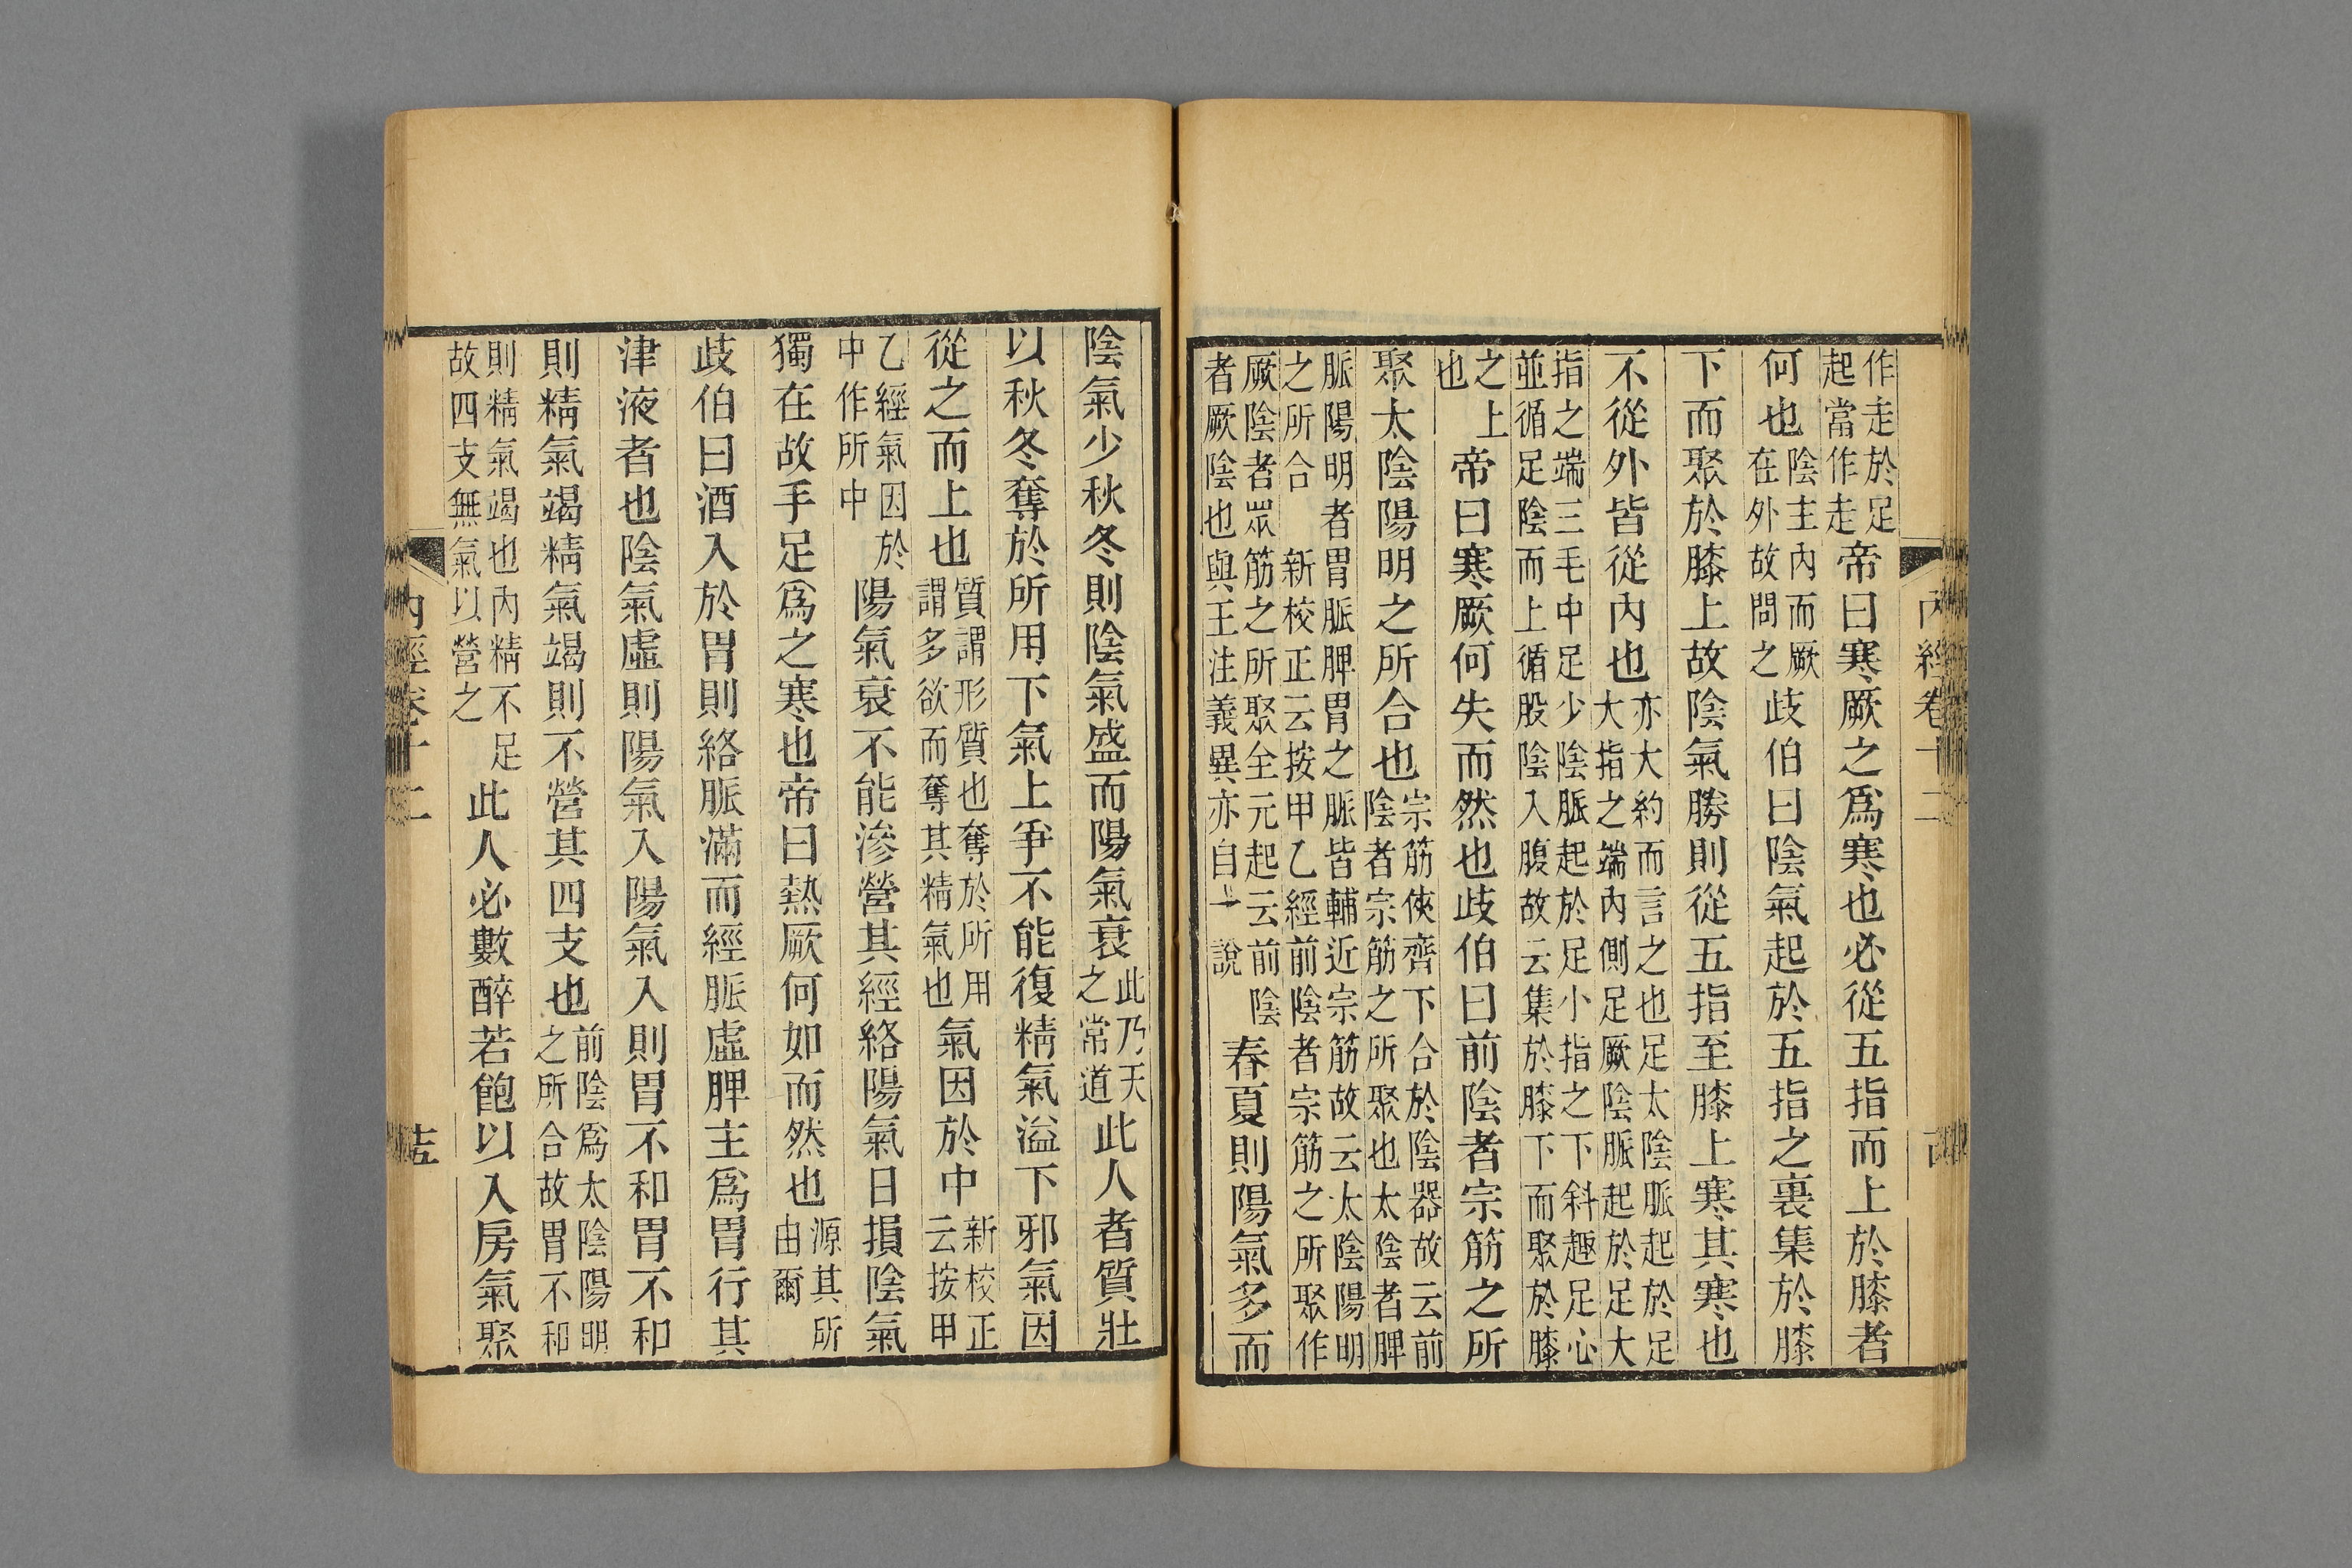 作走於足
起當作走
帝曰寒厥之爲寒也必從五指而上於膝者
何也
陰主內而厥
在外故問之
歧伯曰陰氣起於五指之裏集於膝
下而聚於膝上故陰氣勝則從五指至膝上寒其寒也
不從外皆從內也
亦大約而言之也足太陰脈起於足
大指之端內側足厥陰脈起於足大
指之端三毛中足少陰脈起於足小指之下斜趣足心
並循足陰而上循股陰入腹故云集於膝下而聚於膝
之上
也
帝曰寒厥何失而然也歧伯曰前陰者宗筋之所
聚太陰陽明之所合也
宗筋俠齊下合於陰器故云前
陰者宗筋之所聚也太陰者脾
脈陽明者胃脈脾胃之脈皆輔近宗筋故云太陰陽明
之所合 新校正云按甲乙經前陰者宗筋之所聚作
厥陰者眾筋之所聚全元起云前陰
者厥陰也與王注義異亦自一說
春夏則陽氣多而
內經卷十二
陰氣少秋冬則陰氣盛而陽氣衰
此乃天
之常道
此人者質壯
以秋冬奪於所用下氣上爭不能復精氣溢下邪氣因
從之而上也
質謂形質也奪於所用
謂多欲而奪其精氣也
氣因於中
新校正
云按甲
乙經氣因於
中作所中
陽氣衰不能滲營其經絡陽氣日損陰氣
獨在故手足爲之寒也帝曰熱厥何如而然也
源其所
由爾
歧伯曰酒入於胃則絡脈滿而經脈虛脾主爲胃行其
津液者也陰氣虛則陽氣入陽氣入則胃不和胃不和
則精氣竭精氣竭則不營其四支也
前陰爲太陰陽明
之所合故胃不和
則精氣竭也內精不足
故四支無氣以營之
此人必數醉若飽以入房氣聚
內經卷十二
十五